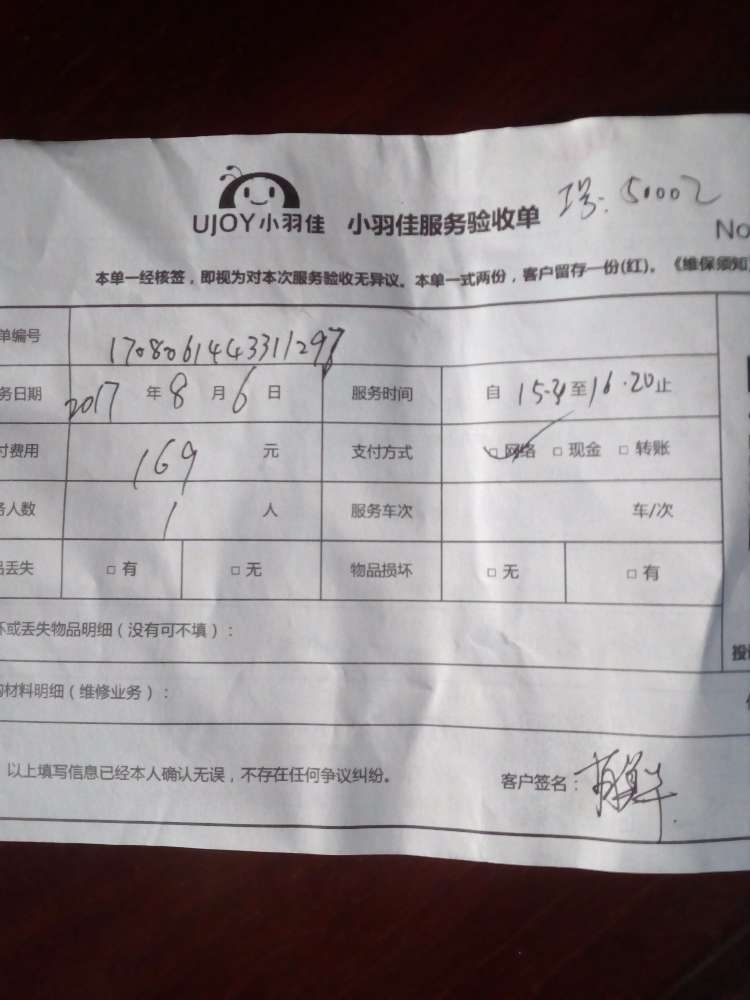 UJOY小羽佳 小羽佳服务验收单 工号:51002
No
本单一经核签，即视为对本次服务验收无异议。本单一式两份，客户留存一份(红)。《维保须知
单编号 1708061443311297
务日期 2017 年 8 月 6 日 服务时间 自 至 16.20止
付费用 169 元 支付方式 □ 网络 □ 现金 □ 转账
务人数 1 人 服务车次 车/次
品丢失 □ 有 □ 无 物品损坏 □ 无 □ 有
坏或丢失物品明细（没有可不填）：
投
购材料明细（维修业务）：
以上填写信息已经本人确认无误，不存在任何争议纠纷。 客户签名：